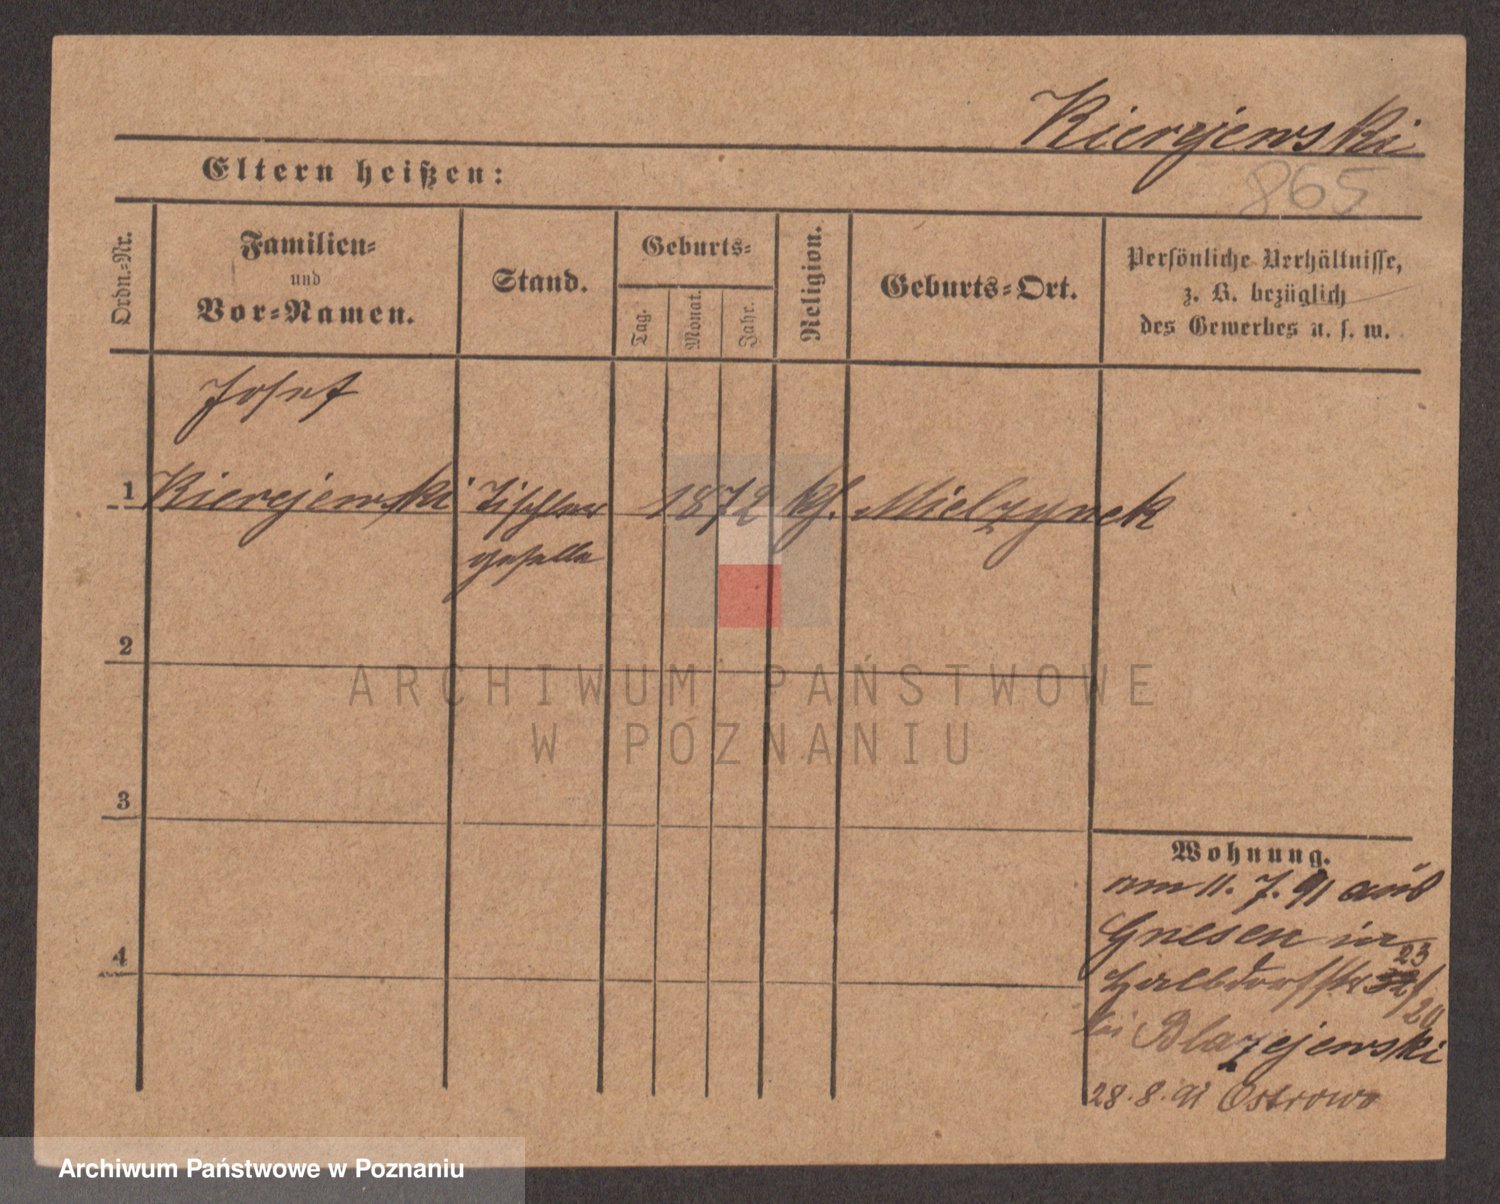 Kierejewski
Eltern heißen:
865
Ordn.-Nr.
Familien-
und
Vor-Namen.
Stand.
Geburts-
Tag.
Monat.
Jahr.
Religion.
Geburts-Ort.
Persönliche Verhältnisse,
z. B. bezüglich
des Gewerbes u. s. w.
Josef
1 Kierejewski Tischler 1872 kh. Mielzynek
geselle
2
ARCHIWUM PAŃSTWOWE
W POZNANIU
3
Wohnung.
am 11. 7. 91 aus
Gnesen in
23
Halbdorfstr 32/
20
bei Blazejewski
4
28. 8. 91 Ostrowo
Archiwum Państwowe w Poznaniu